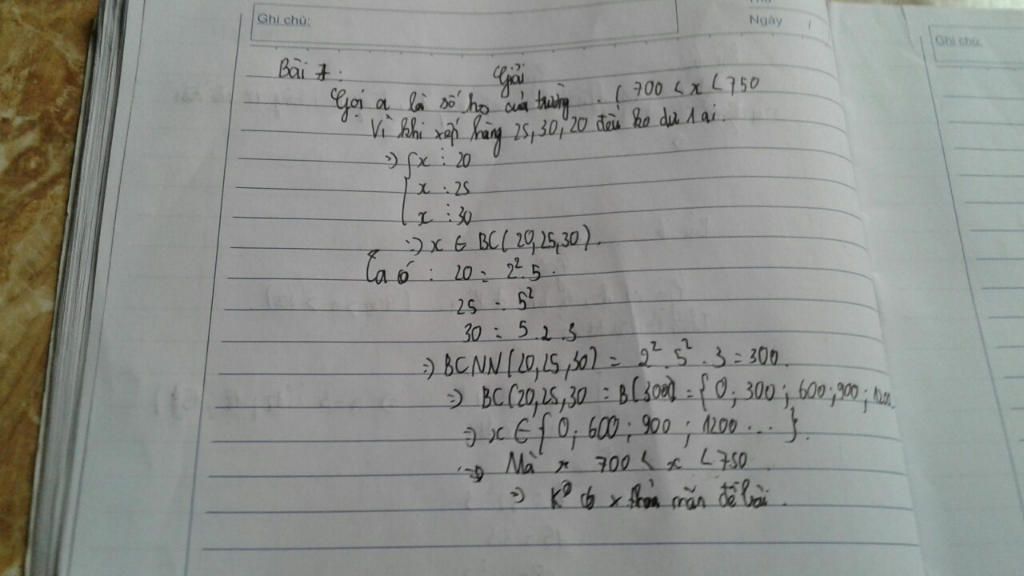 Thứ
Ghi chú:
Ngày
Ghi chú:
Bài 7: Giải
Gọi a là số hs của trường. ( 700 < x < 750
Vì khi xếp hàng 25, 30, 20 đều ko dư 1 ai.
=> { x ⋮ 20
x ⋮ 25
x ⋮ 30
=> x ∈ BC(20,25,30).
Ta có : 20 = 2².5.
25 = 5²
30 = 5.2.3
=> BCNN(20,25,30) = 2².5².3 = 300.
=> BC(20,25,30 = B(300) = { 0; 300; 600; 900; 1200
=> x ∈ { 0; 600; 900; 1200... }.
=> Mà x 700 < x < 750
=> Ko có x thỏa mãn đề bài.